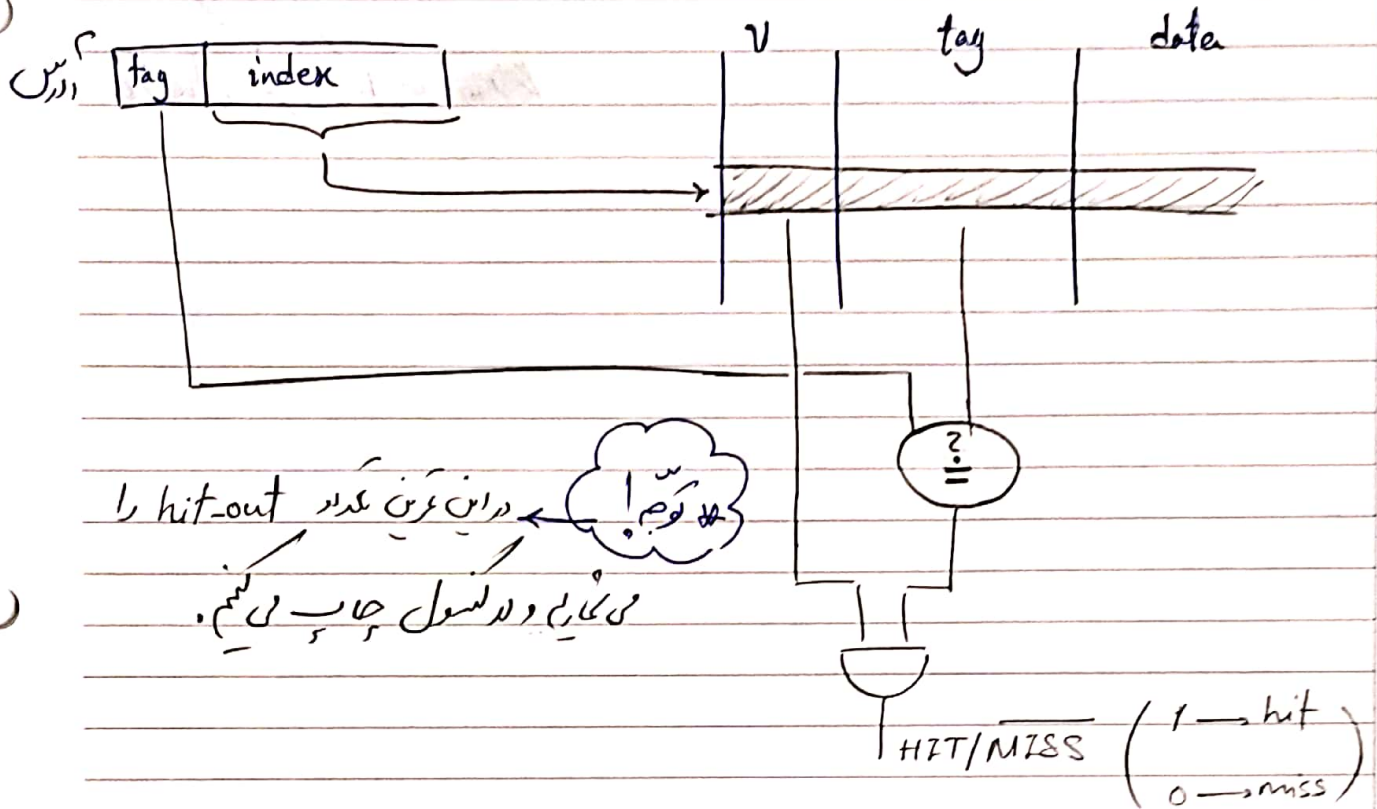 آدرس tag index
V tag data
؟
=
توجه!
در این تمرین تعداد hit_out را
می‌شماریم و در کنسول چاپ می‌کنیم.
HIT/MISS
1 → hit
0 → miss